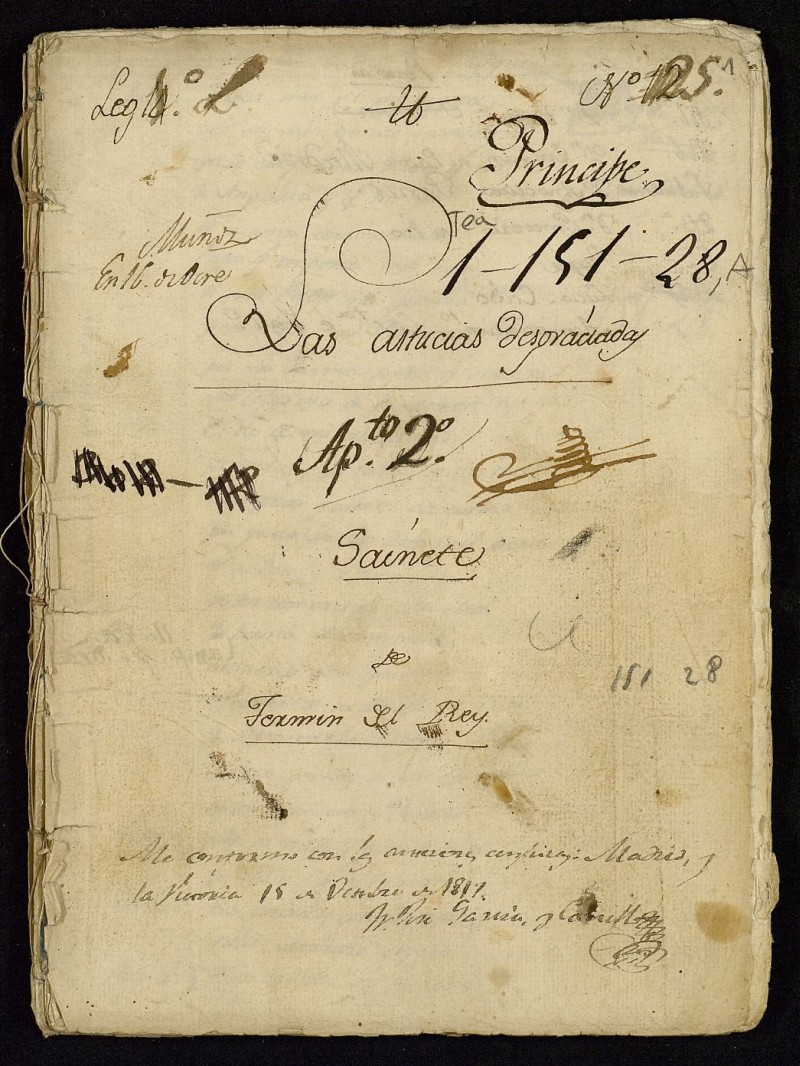 Leg 1º. L
No 125.
Principe
Muñoz
En 16. de Ocre
Tea
1-151-28, A
Las astucias desgraciadas
Ap.to 2.º
Sainete
de
151 28
Fermin del Rey.
Me conformo con las anteriores censuras. Madrid, y
la Victoria 15 de Octubre de 1817.
Fr. José Garcia, y Carrillo